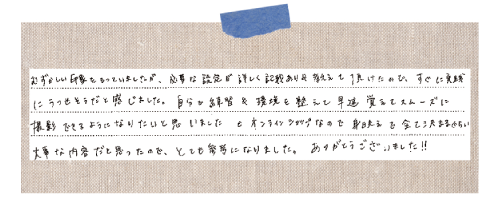 むずかしい印象をもっていましたが、必要な設定が詳しく記載ありを教えて頂けたので、すぐに実践
にうつせそうだと感じました。自分の練習を環境を整えて早速覚えてスムーズに
撮影できるようになりたいと思いました オンラインなので
大事な内容だと思ったので、とても参考になりました。ありがとうございました!!